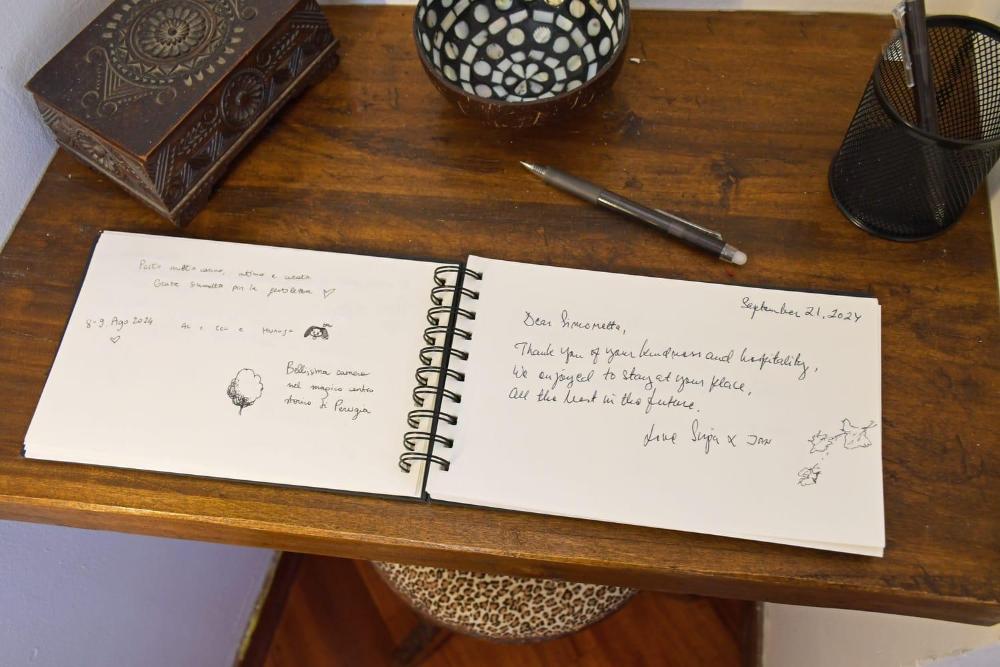 Posto molto carino, intimo e curato
Grazie Simonetta per la gentilezza
8-9 Ago 2024
Bellissima camera
nel magico centro
storico di Perugia
September 21, 2024
Dear Simonetta,
Thank you of your kindness and hospitality,
We enjoyed to stay at your place,
All the best in the future.
Love Sirja x Jan